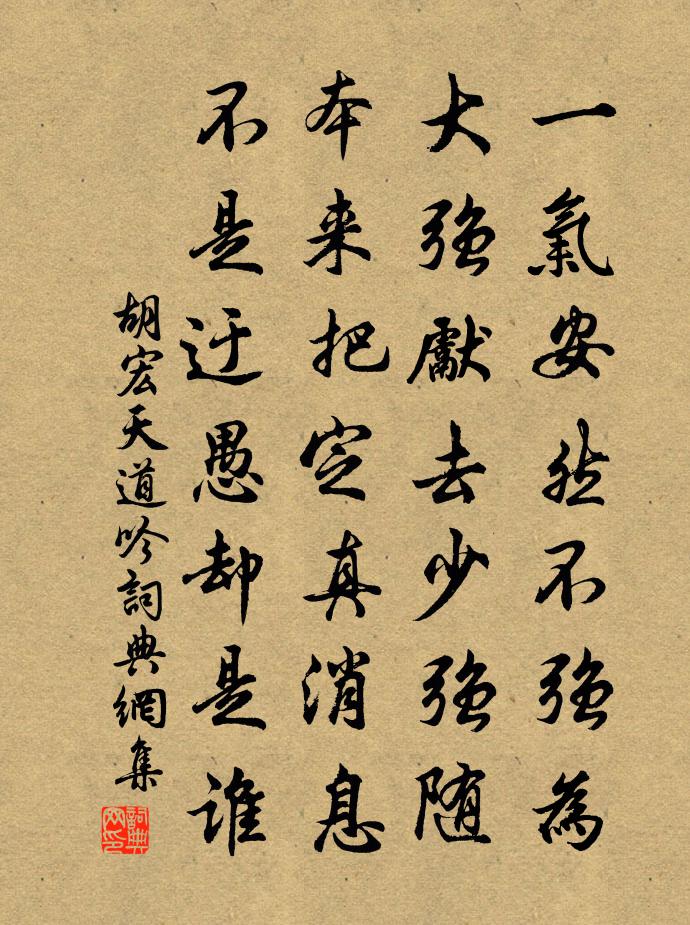 一氣安然不強為
大強獻去少強随
本来把定真消息
不是迂愚却是誰
胡宏天道吟詞典網集
詞典网印